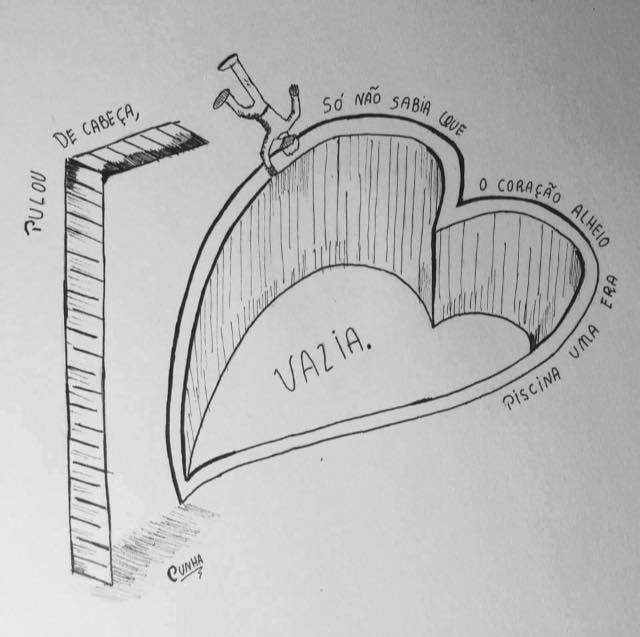 PULOU
DE CABEÇA,
SÓ NÃO SABIA QUE
O CORAÇÃO ALHEIO
PISCINA UMA ERA
VAZIA.
CUNHA